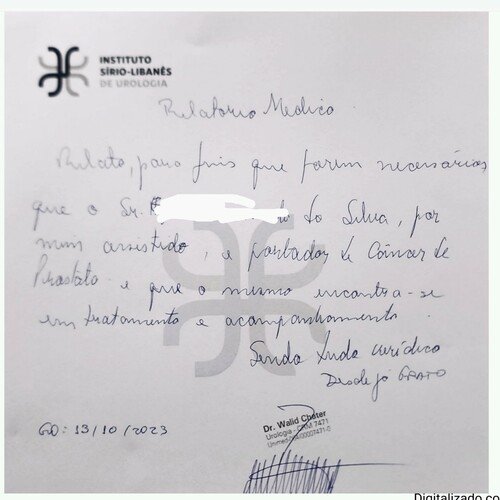 INSTITUTO
SÍRIO-LIBANÊS
DE UROLOGIA
Relatorio Medico
Relato, para fins que forem necessários
que o Sr. do Silva, por
mim assistido, é portador de Câncer de
Prostata e que o mesmo encontra-se
em tratamento e acompanhamento.
Sendo tudo verídico
Desde já GRATO
GO: 13/10/2023
Dr. Walid Chater
Urologia - CRM 7471
Unimed
Digitalizado co